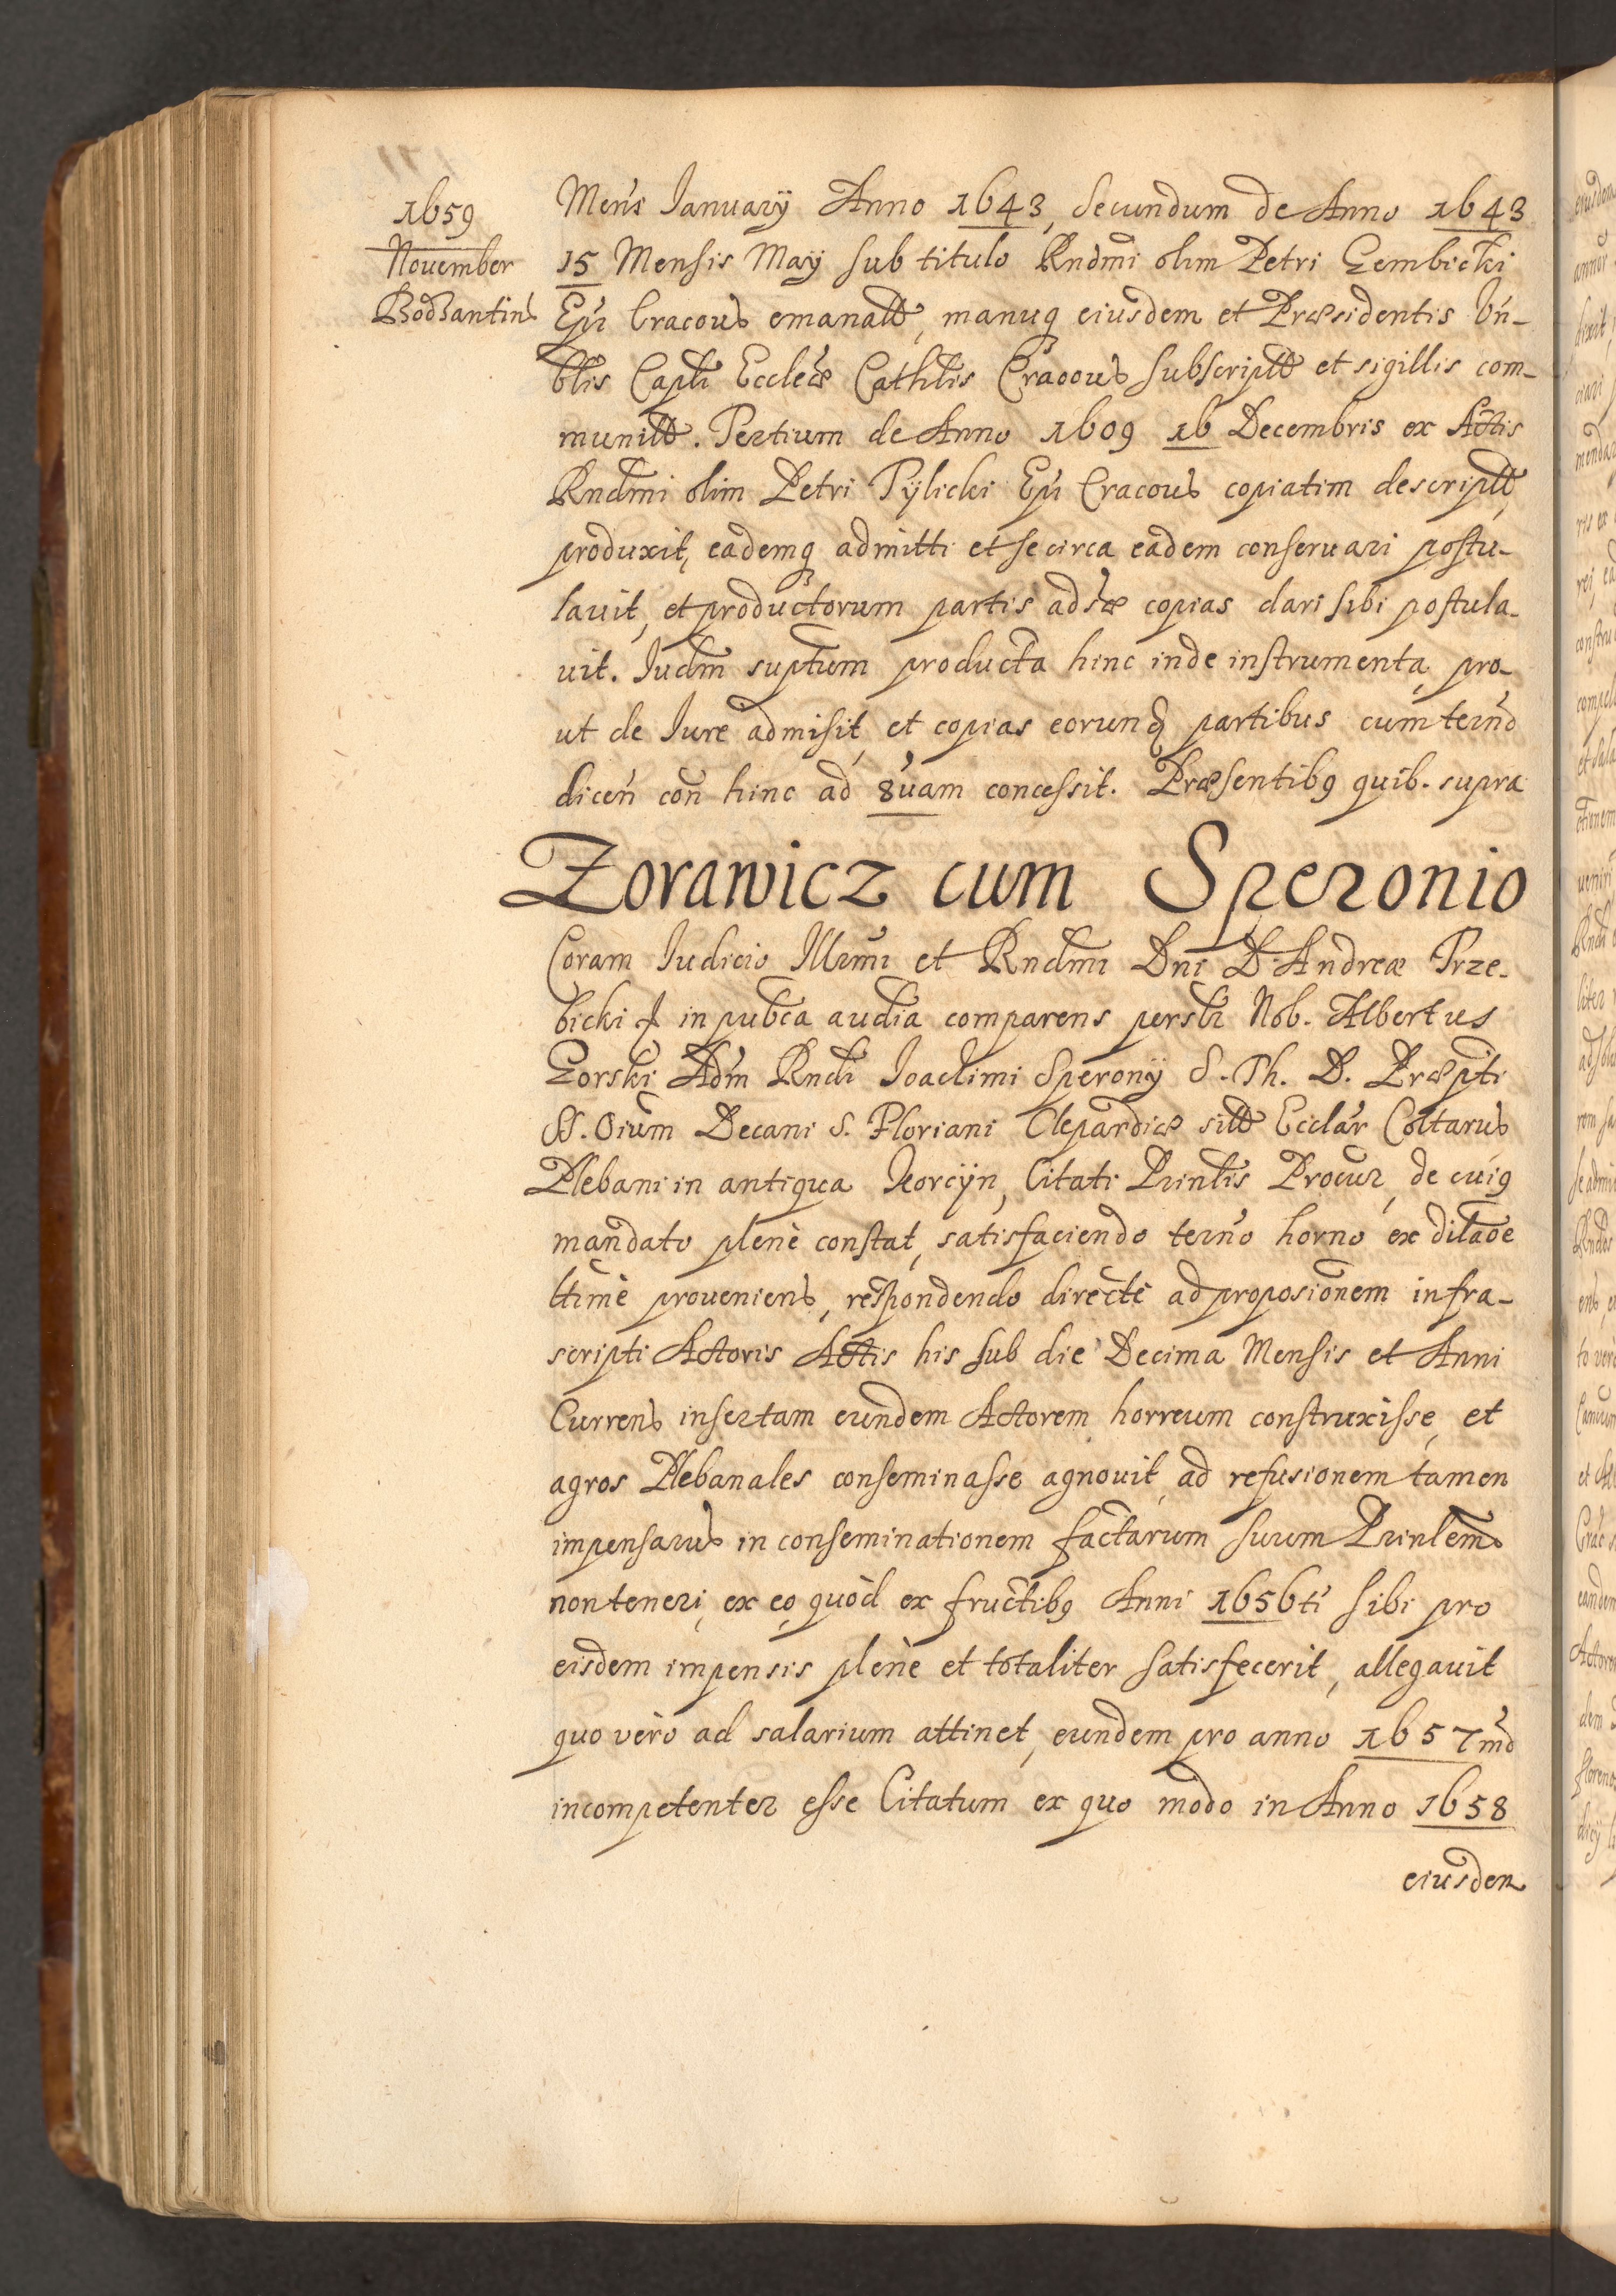 1659
November
Bodzantins
Mens Ianuarÿ Anno 1643, Secundum de Anno 1643
15 Mensis Maÿ sub titulo Rndmi olim Petri Gembicki
Epi Cracous emanatt, manuq eiusdem et Præsidentis Vn-
blis Capli Eccleæ Cathlis Cracous subscriptt et sigillis com-
munitt. Tertium de Anno 1609 16 Decembris ex Actis
Rndmi olim Petri Tÿlicki Epi Cracous copiatim descriptt,
produxit, eademq admitti et se circa eadem conseruari postu-
lauit, et productorum partis adsæ copias dari sibi postula-
uit. Iudm suptum producta hinc inde instrumenta pro-
ut de Iure admisit et copias eorund partibus cum termo
dicen con hinc ad 8uam concessit. Præsentibq quib. supra
Zorawicz cum Speronio
Coram Iudicio Illrmi et Rndmi Dni D Andreæ Trze-
bicki in pubca audia comparens persli Nob. Albertus
Gorski Adm Rndi Ioachimi Speronÿ S. Th. D. Præpti
SS. Oium Decani S. Floriani Clepardiæ sitt Ecclar Coltarus
Plebani in antiqua Korcÿn, Citati Prinlis Procur, de cuiq
mandato plenè constat, satisfaciendo termo horno ex dilaoe
ltimè proueniens, respondendo directè ad proposionem infra-
scripti Actoris Actis his sub die Decima Mensis et Anni
Currens insertam eundem Actorem horreum construxisse, et
agros Plebanales conseminasse agnouit, ad refusionem tamen
impensarus in conseminationem factarum suum Prinlem
non teneri, ex eo quòd ex fructibq Anni 1656ti sibi pro
eisdem impensis plenè et totaliter satisfecerit, allegauit
quo verò ad salarium attinet, eundem pro anno 1657mo
incompetenter esse Citatum ex quo modo in Anno 1658
eiusdem